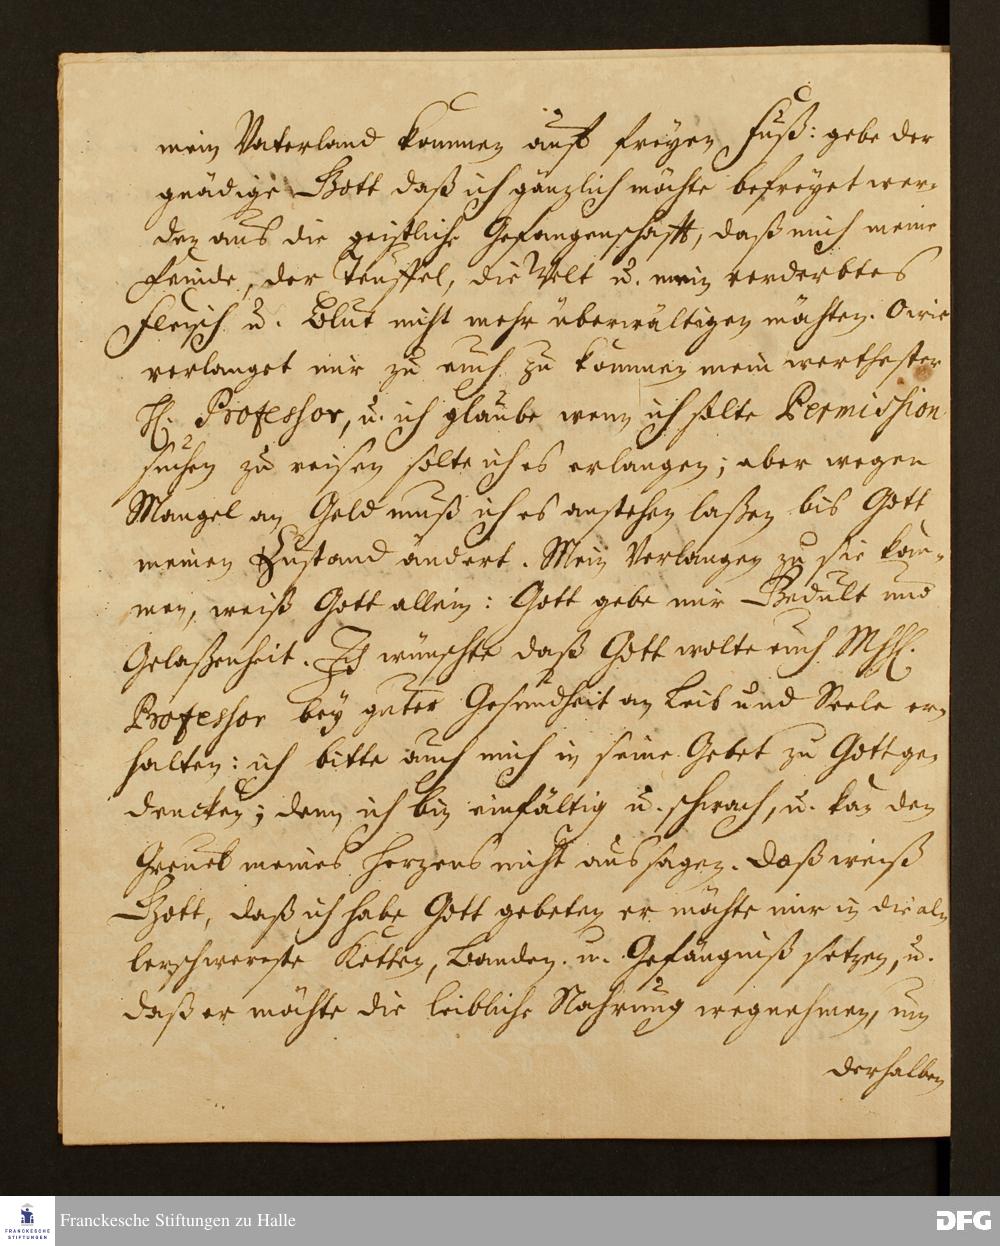 mein Vaterland kommen auff freÿen Fuß: gebe der
gnädige Gott daß ich gänzlich möchte befreÿet wer-
den aus die geistliche Gefangenschafft, daß mich meine
Feinde, der Teuffel, die Welt u. mein verderbtes
Fleisch u. Blut nicht mehr überwältigen möchten. O wie
verlanget mir zu euch zu kommen mein werthester
H. Professor, u. ich glaube wenn ich solte Permission
suchen zu reisen solte ich es erlangen; aber wegen
Mangel an Geld muß ich es anstehen laßen bis Gott
meinen Zustand ändert. Mein Verlangen zu sie kom-
men, weiß Gott allein: Gott gebe mir Gedult und
Gelaßenheit. Ich wünschte daß Gott wolte euch MhH.
Professor beÿ guter Gesundheit an Leib und Seele er-
halten: ich bitte auch mich in seine Gebet zu Gott ge-
dencken; denn ich bin einfältig u. schwach, u. kan den
Greuel meines Herzens nicht aussagen. Daß weiß
Gott, daß ich habe Gott gebeten er möchte mir in die al-
lerschwereste Ketten, Banden u. Gefängniß setzen, u.
daß er möchte die leibliche Nahrung wegnehmen, um
derhalben
FRANCKESCHE
STIFTUNGEN
Franckesche Stiftungen zu Halle
DFG